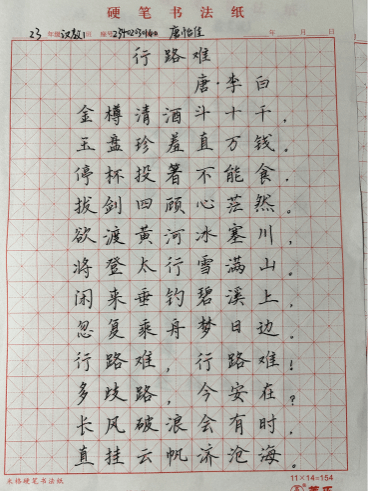 硬笔书法纸
23年级汉教1班 编号 唐怡佳 年 月 日
行路难
唐·李白
金樽清酒斗十千,
玉盘珍羞直万钱。
停杯投箸不能食,
拔剑四顾心茫然。
欲渡黄河冰塞川,
将登太行雪满山。
闲来垂钓碧溪上,
忽复乘舟梦日边。
行路难,行路难!
多歧路,今安在?
长风破浪会有时,
直挂云帆济沧海。
米格硬笔书法纸
11×14=154